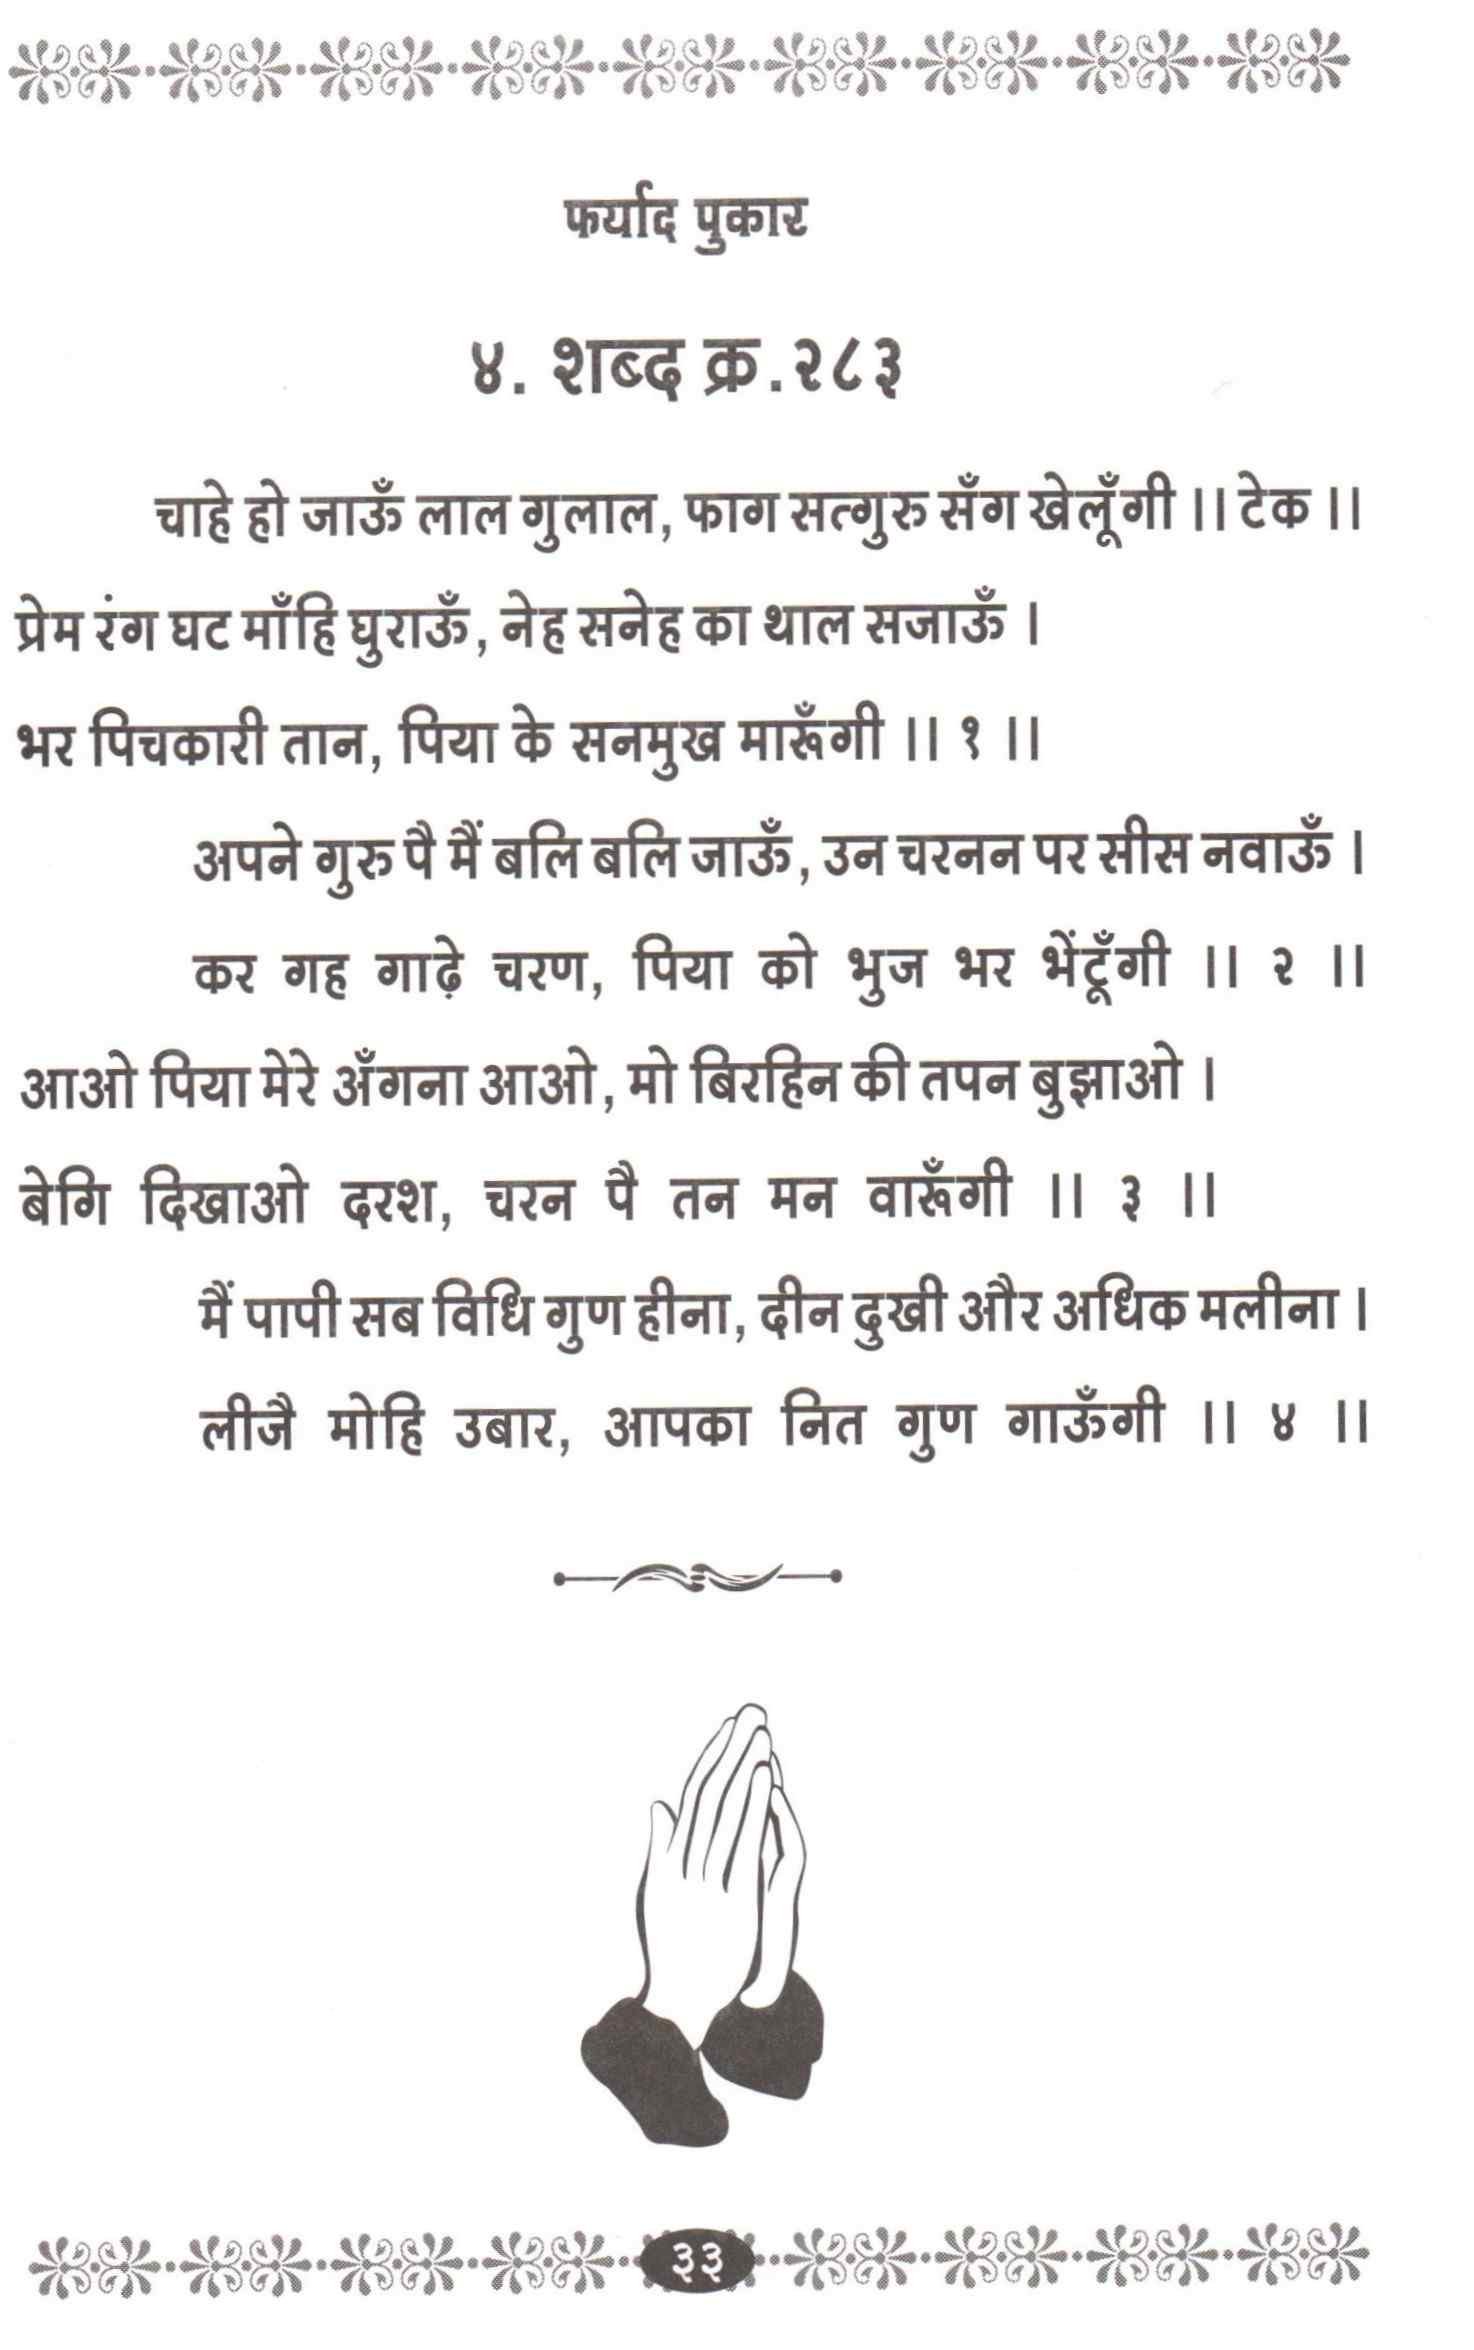 फर्याद पुकार
४. शब्द क्र.२८३
चाहे हो जाऊँ लाल गुलाल, फाग सत्गुरु सँग खेलूँगी ।। टेक ।।
प्रेम रंग घट माँहि घुराऊँ, नेह सनेह का थाल सजाऊँ ।
भर पिचकारी तान, पिया के सनमुख मारूँगी ।। १ ।।
अपने गुरु पै मैं बलि बलि जाऊँ, उन चरनन पर सीस नवाऊँ ।
कर गह गाढ़े चरण, पिया को भुज भर भेंटूँगी ।। २ ।।
आओ पिया मेरे अँगना आओ, मो बिरहिन की तपन बुझाओ ।
बेगि दिखाओ दरश, चरन पै तन मन वारूँगी ।। ३ ।।
मैं पापी सब विधि गुण हीना, दीन दुखी और अधिक मलीना ।
लीजै मोहि उबार, आपका नित गुण गाऊँगी ।। ४ ।।
३३